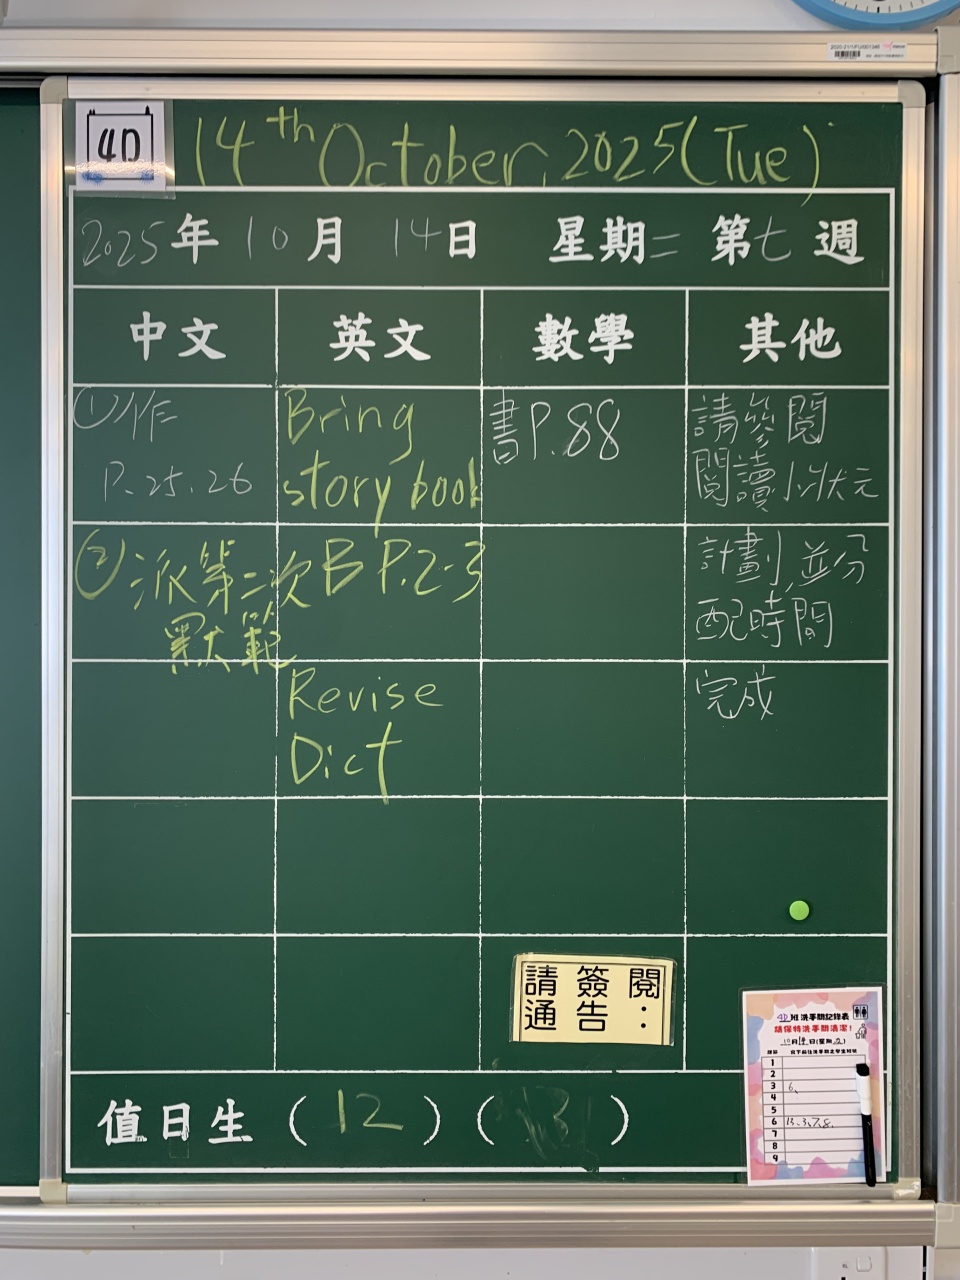 4D
14th October, 2025 (Tue)
2025年 10月 14日 星期二 第七週
中文 英文 數學 其他
①作
P.25.26
②派第二次
默範
Bring
story book
B P.2-3
Revise
Dict
書P.88
請參閱
閱讀小狀元
計劃,並分
配時間
完成
請簽閱
通告:
4D班洗手間記錄表
請保持洗手間清潔!
10月14日(星期二)
1
2
3 6、
4
5
6 13、3、7、8、
7
8
9
值日生 (12) (13)